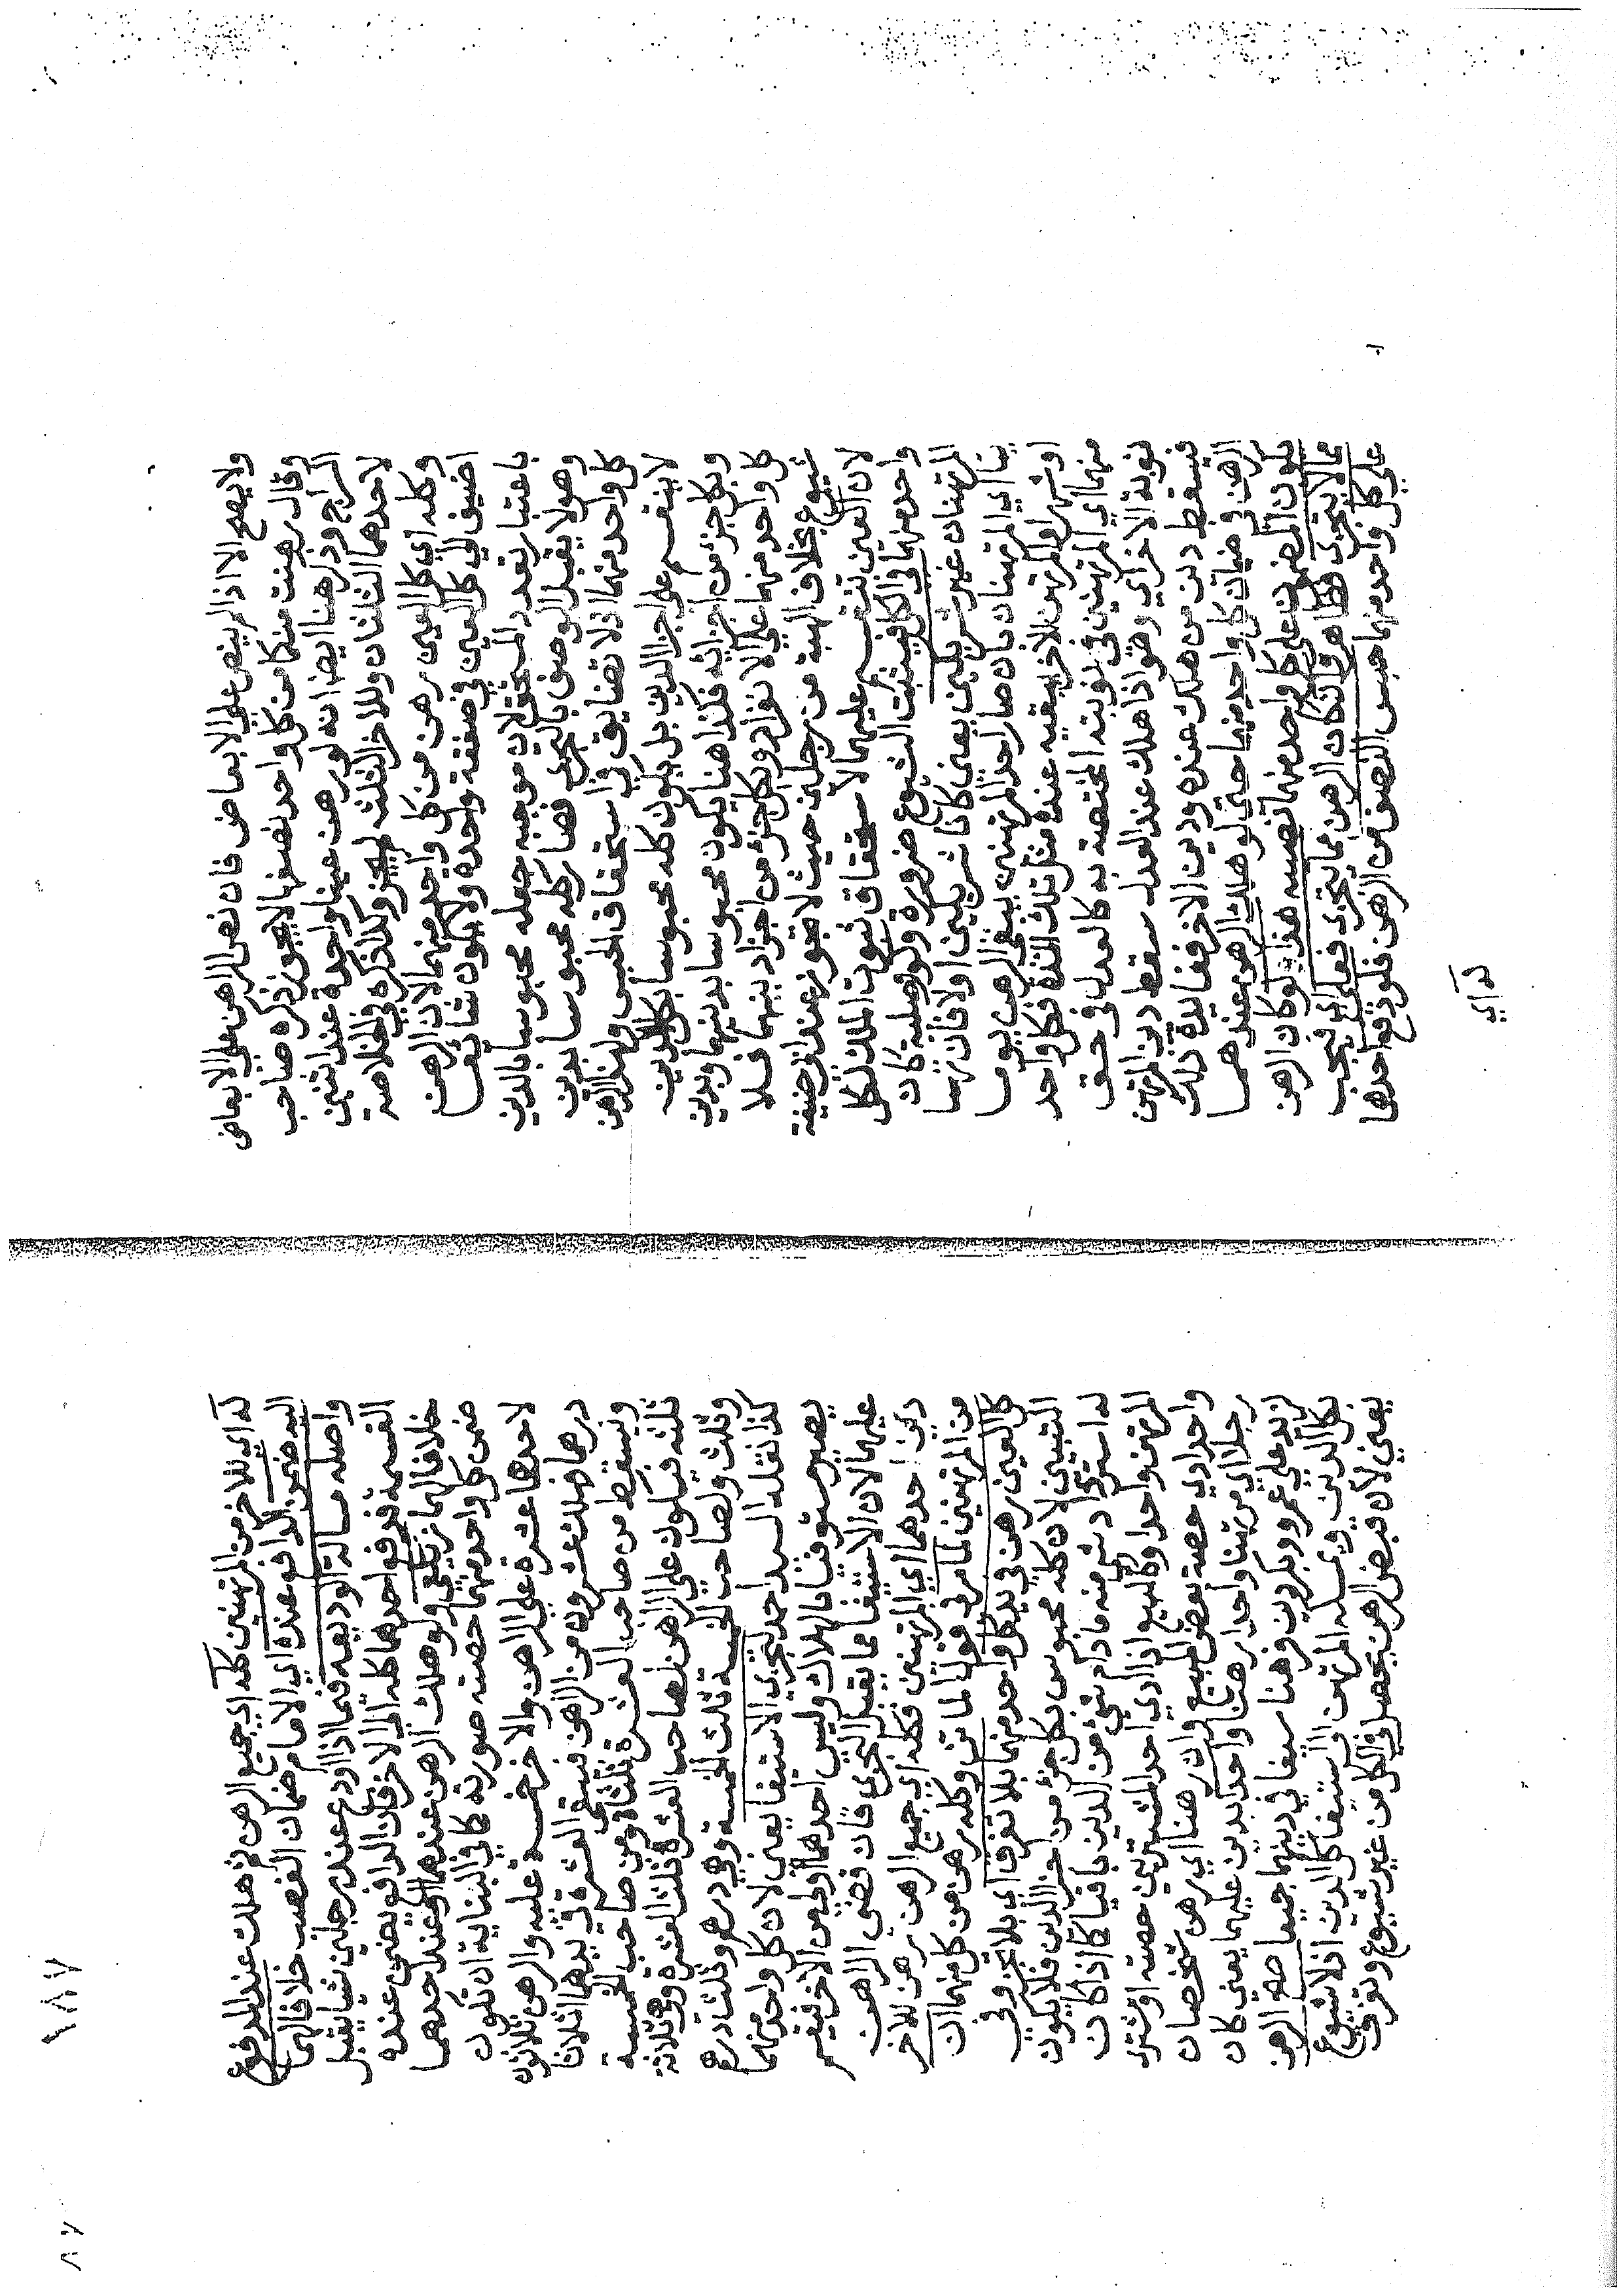 ولا يصح الا اذا لم ينص علي الابعاض فان نص الراهن علي الابعاض
وقال رهنت منكما من كل واحد نصفها لا يجوز ذكره صاحب
السراج ودل هنا ايضا انه لو رهن عينا واحدة عند اثنين
لاحدهما الثلثان وللاخر الثلث لم يجز وكذا ذكره في الخلاصة
وكله اي كل العين رهن من كل واحد منهما لان الرهن
اضيف الي كل العين في صفقة واحدة ولا يكون شائعا
باعتبار تعدد المستحق لان موجبه جعله محبوسا بالدين
وهو لا يقبل الوصف بالتجزي فصار كله محبوسا بدين
كل واحد منهما اذ لا تضايق في استحقاق الحبس ولهذا الرهن
لا ينقسم علي اجزا الدين بل يكون كله محبوسا بكل الدين
وبكل جزء من اجزائه فكذا هنا يكون محبوسا بدينهما وبدين
كل واحد منهما علي الانفراد وبكل جزء من اجزاء دينهما فلا
شيوع بخلاف الهبة من رجلين حيث لا تجوز عند ابي حنيفة
لان العين تنقسم عليهما لاستحقاق ثبوت الملك لكل
واحد منهما في الكل فيثبت الشيوع ضرورة ولو وصلية كان
المرتهنان غير شريكين يعني كانا شريكين اولا فان تهايا
بنا اي المرتهنان بان صار احد المرتهنين يبقي الرهن يوما
او شهرا والمرتهن الاخر يبقيه عنده مثل تلك المدة فكل واحد
منهما اي المرتهنين في نوبته المختصة به كالعدل في حق
نوبة الاخر اي وهو اذا هلك عند العدل سقط دين المرتهن
فيسقط دين من هلك عنده ودين الاخر ففايدة ذلك
الرهن في ضمان كل واحد منهما حتي لو هلك الرهن عندهما
يكون المضمون علي كل واحد منهما نصيبه هذا لو كان الرهن
مما لا يتجزي فظاهر وان كان الرهن مما يتجزي فعلي اي فيجب
علي كل واحد منهما حبس النصف من الرهن فلو دفع احدهما
له اي
له اي للاخر من المرتهنين كله اي جميع الرهن ثم هلك عند المدفوع
اليه ضمن الدافع عنده اي الامام ضمان الغصب خلافا لهما
واصله مسالة الوديعه فيما اذا اودع عند رجلين شيا يقبل
القسمة فدفع احدهما كله الي الاخر فان الدافع يضمن عنده
خلافا لهما زيلعي ولو هلك الرهن عندهما او عند احدهما
ضمن كل واحد منهما حصته صورته كما في البناية ان تكون
لاحدهما عشرة علي الراهن والاخر خمسة عليه والرهن ثلاثون
درهما فهلك عشرون من الرهن فتبقي العشرة في يدهما اثلاثا
ويسقط من صاحب العشرة ثلثاه ومن صاحب الخمسة
ثلثه فيكون علي الراهن لصاحب العشرة ثلث العشرة وهي ثلاثة
وثلث ولصاحب الخمسة ثلث الخمسة وهي درهم وثلثا درهم
كذا نقله السيد احمد لتجزي الاستيفا يعني لان كل واحد منهما
يصير مستوفيا بالهلاك وليس احدهما اولي من الاخر فيقسم
عليهما لان الاستيفا مما يقبل التجزي فان قضي الراهن
دين احدهما اي المرتهنين فكله اي جميع الرهن رهن للاخر
من المرتهنين لما مر في قول الماتن وكله رهن من كل منهما ان
كل العين رهن في يد كل واحد منهما بلا تفرق اي بلا تجزي وفي
التبيين لان كله محبوس بكل جزء من اجزا الدين فلا يكون
له استرداد شي منه ما دام شي من الدين باقيا كما اذا كان
المرتهن واحدا وكالبيع اذا ادي احد المشتريين حصته او اشتري
واحد ادي حصة بعض المبيع وان رهنا اي رهن شخصان
رجلا اي مرتهنا واحدا رهنا واحدا بدين عليهما يعني كان
لزيد علي عمرو وبكر دين فرهنا سيفا في دينهما جميعا صح الرهن
بكل الدين ويمسكه المرتهن الي استيفا كل الدين اذ لا شيوع
يعني لان قبض الرهن يحصل في الكل من غير شيوع وتفرق
١٨٧